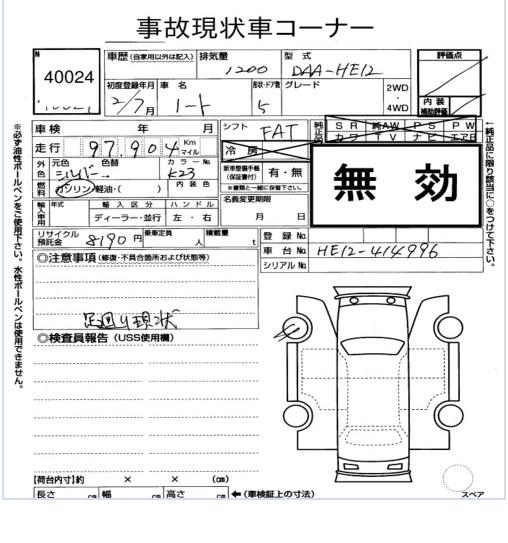 事故現状車コーナー
N 40024
車歴 (自家用以外は記入) 排気量 1200 型式 DAA-HE12 評価点
初度登録年月 2/7月 車名 ノート 形状・ドア数 5 グレード 2WD・4WD 内装補助評価
車検 年 月 シフト FAT 純正品 SR 純AW PS PW
カワ TV ナビ エアB
走行 97,904 Km マイル 冷房
外色 元色 シルバー 色替 → カラーNo. K23 新車整備手帳(保証書付) 有・無 ※書類と一緒に保管下さい。
燃料 ガソリン・軽油・( ) 内装色
無効
輸入車用 年式 輸入区分 ハンドル 名義変更期限
ディーラー・並行 左・右 月 日
リサイクル預託金 8190円 乗車定員 人 積載量 t 登録No.
車台No. HE12-414996
シリアルNo.
◎注意事項 (修復・不具合箇所および状態等)
足廻り現状
◎検査員報告 (USS使用欄)
【荷台内寸】約 × × (cm)
長さ cm 幅 cm 高さ cm ←(車検証上の寸法)
スペア
※必ず油性ボールペンをご使用下さい。水性ボールペンは使用できません。
←純正品に限り該当に○をつけて下さい。